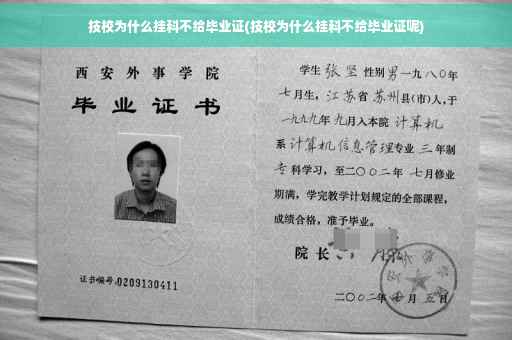 技校为什么挂科不给毕业证(技校为什么挂科不给毕业证呢)
西安外事学院
毕业证书
证书编号:0209130411
学生张坚性别男一九八〇年
七月生,江苏省苏州县(市)人,于
一九九九年九月入本院计算机
系计算机信息管理专业三年制
专科学习,至二〇〇二年七月修业
期满,学完教学计划规定的全部课程,
成绩合格,准予毕业。
院长
二〇〇二年七月五日